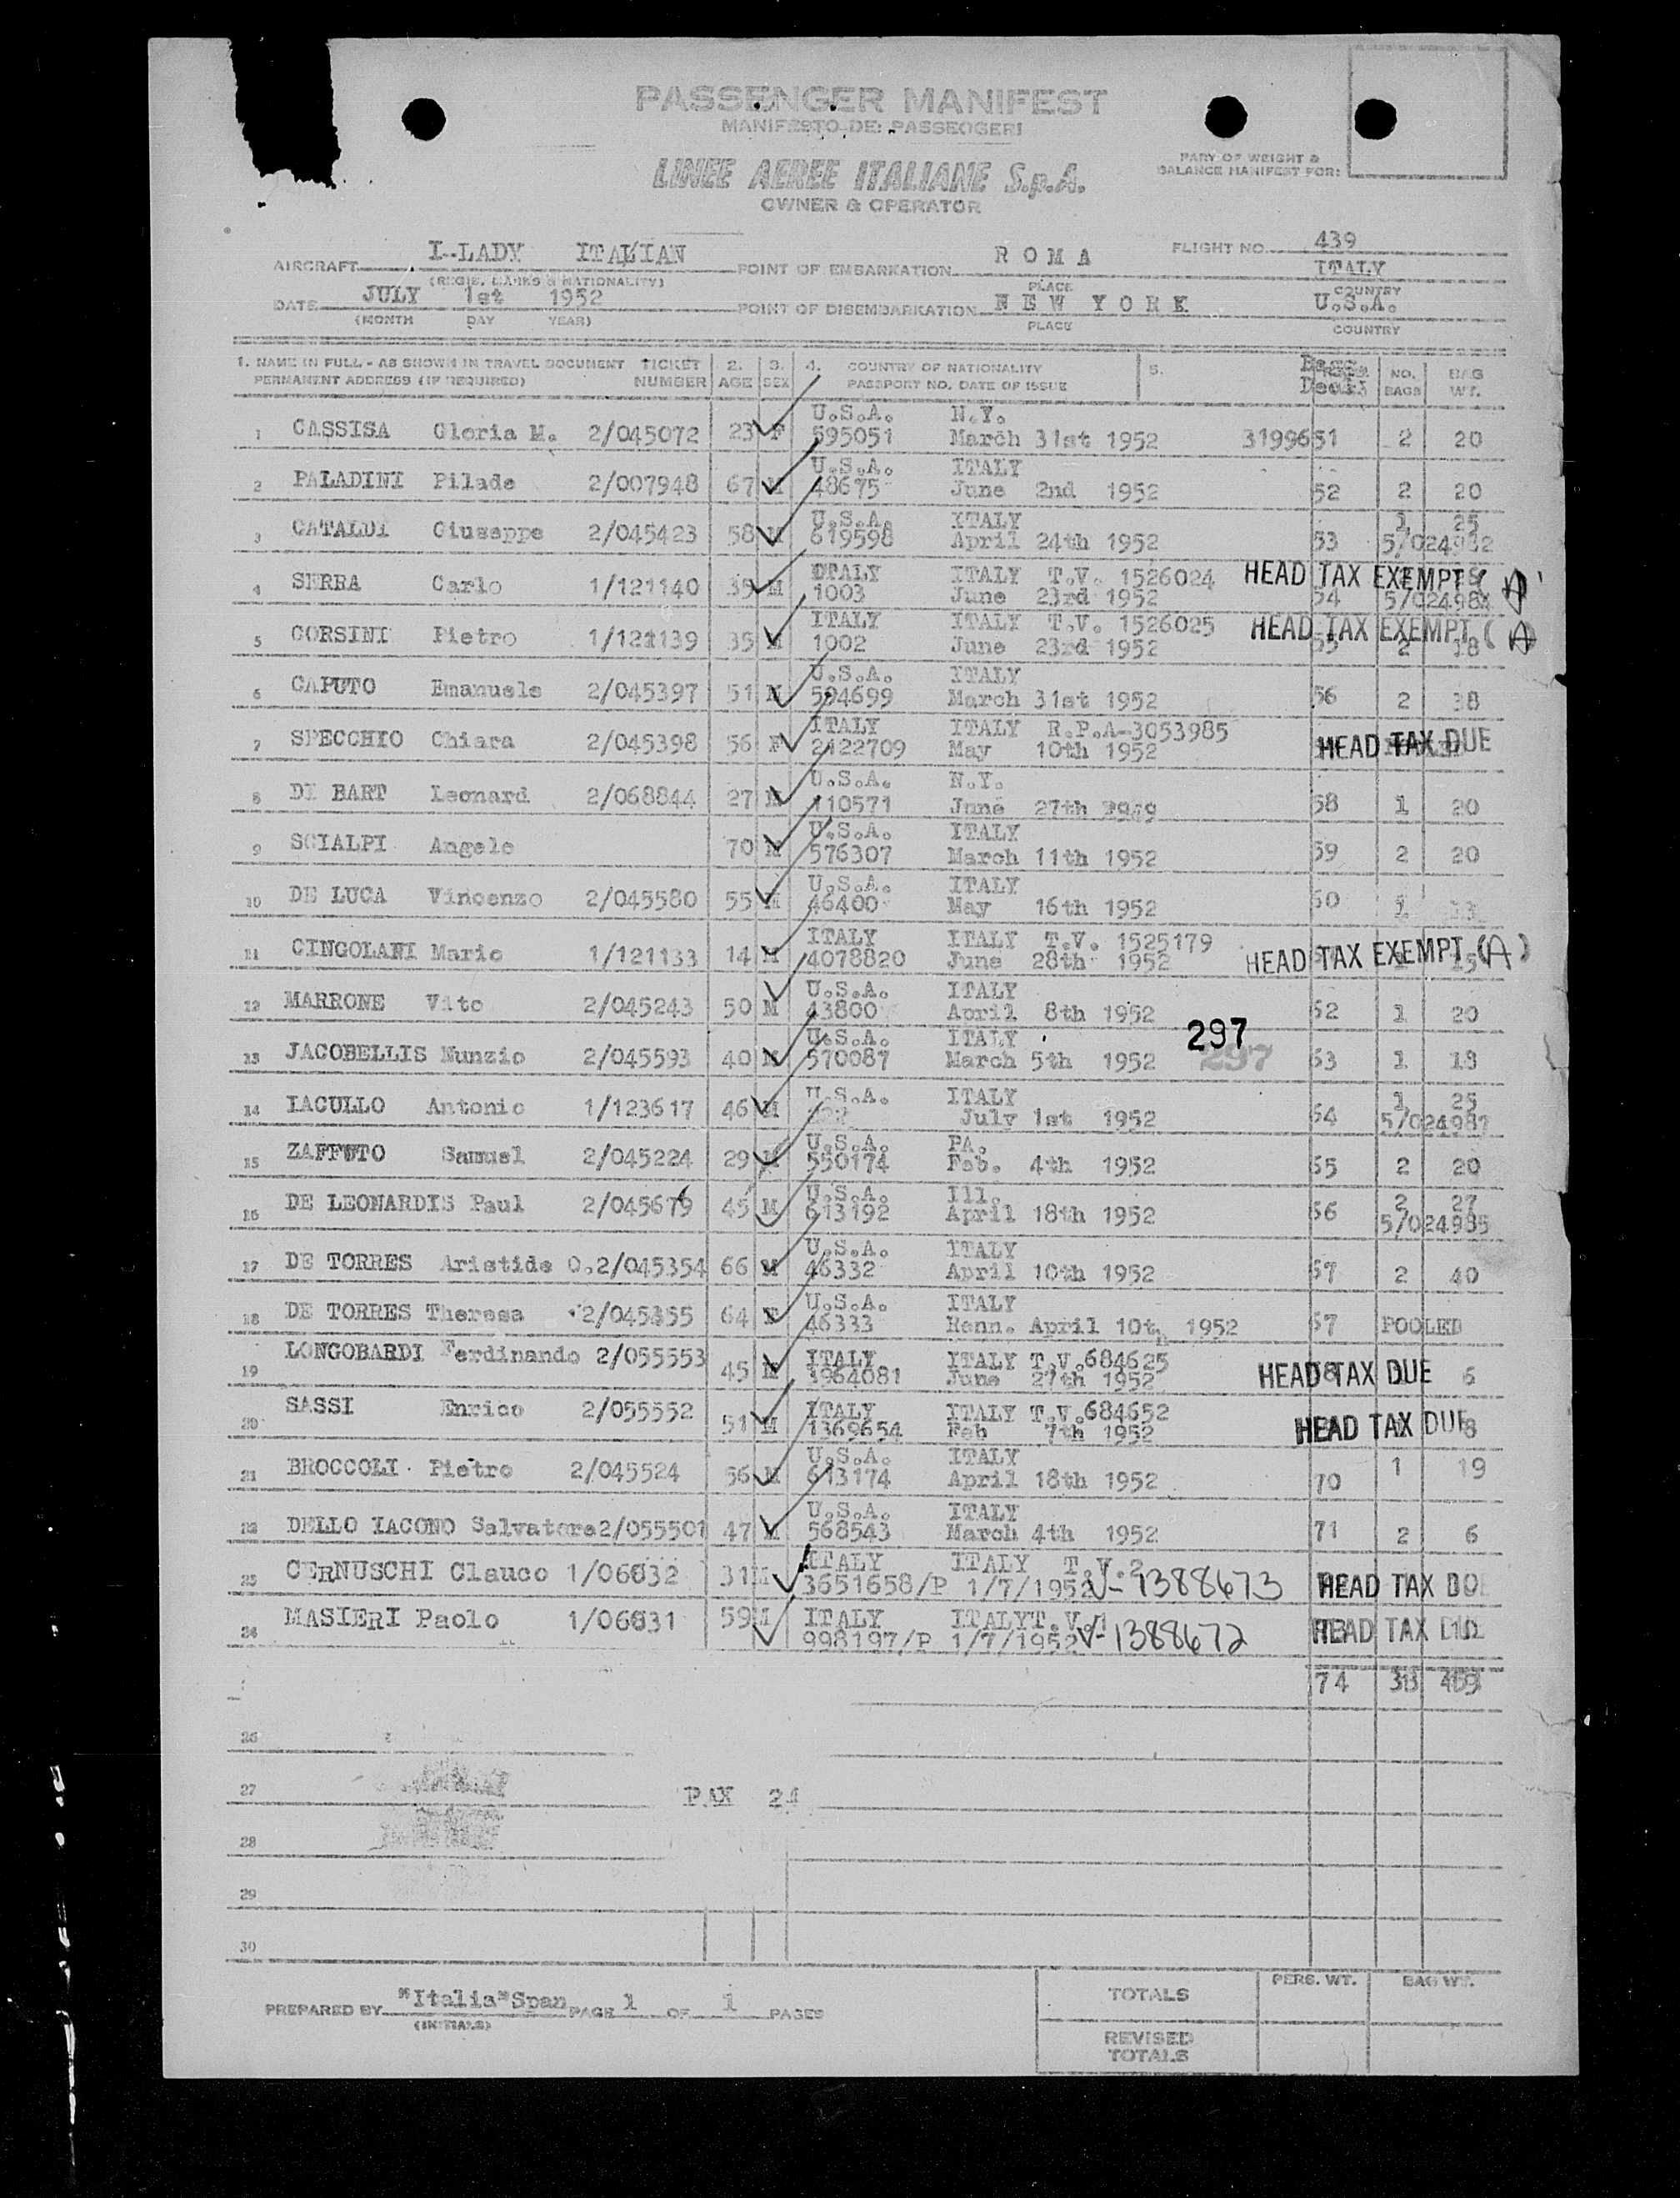 PASSENGER MANIFEST
MANIFESTO DEI PASSEGGERI
LINEE AEREE ITALIANE S.p.A.
OWNER & OPERATOR
PART OF WEIGHT &
BALANCE MANIFEST FOR:
AIRCRAFT I-LADY ITALIAN POINT OF EMBARKATION R O M A FLIGHT NO. 439
(REGIS. MARKS & NATIONALITY) PLACE ITALY COUNTRY
DATE JULY 1st 1952 POINT OF DISEMBARKATION N E W Y O R K U.S.A.
(MONTH DAY YEAR) PLACE COUNTRY
1. NAME IN FULL - AS SHOWN IN TRAVEL DOCUMENT TICKET 2. 3. 4. COUNTRY OF NATIONALITY 5. Bagg. NO. BAG
PERMANENT ADDRESS (IF REQUIRED) NUMBER AGE SEX PASSPORT NO. DATE OF ISSUE BAGS WT.
U.S.A. N.Y.
1 CASSISA Gloria M. 2/045072 23 F 595051 March 31st 1952 3199651 2 20
U.S.A. ITALY
2 PALADINI Pilade 2/007948 67 M 48675 June 2nd 1952 52 2 20
U.S.A. ITALY 1 25
3 CATALDI Giuseppe 2/045423 58 M 619598 April 24th 1952 53 5/024982
ITALY ITALY T.V. 1526024 HEAD TAX EXEMPT (A)
4 SERRA Carlo 1/121140 35 M 1003 June 23rd 1952 54
ITALY ITALY T.V. 1526025 HEAD TAX EXEMPT (A)
5 CORSINI Pietro 1/121139 35 M 1002 June 23rd 1952 55 2 18
U.S.A. ITALY
6 CAPUTO Emanuele 2/045397 51 M 594699 March 31st 1952 56 2 38
ITALY ITALY R.P.A-3053985
7 SPECCHIO Chiara 2/045398 56 F 2422709 May 10th 1952 HEAD TAX DUE
U.S.A. N.Y.
8 DI BART Leonard 2/068844 27 M 110571 June 27th 1949 58 1 20
U.S.A. ITALY
9 SCIALPI Angelo 70 M 576307 March 11th 1952 59 2 20
U.S.A. ITALY
10 DE LUCA Vincenzo 2/045580 55 M 46400 May 16th 1952 60 1
ITALY ITALY T.V. 1525179
11 CINGOLANI Mario 1/121133 14 M 4078820 June 28th 1952 HEAD TAX EXEMPT (A) 15
U.S.A. ITALY
12 MARRONE Vito 2/045243 50 M 43800 April 8th 1952 62 1 20
297
U.S.A. ITALY
13 JACOBELLIS Nunzio 2/045593 40 M 570087 March 5th 1952 297 63 1 18
U.S.A. ITALY 1 25
14 IACULLO Antonio 1/123617 46 M July 1st 1952 64 5/024987
U.S.A. PA.
15 ZAFFUTO Samuel 2/045224 29 M 550174 Feb. 4th 1952 65 2 20
U.S.A. Ill. 2 27
16 DE LEONARDIS Paul 2/045679 45 M 613192 April 18th 1952 66 5/024985
U.S.A. ITALY
17 DE TORRES Aristide O. 2/045354 66 M 46332 April 10th 1952 67 2 40
U.S.A. ITALY
18 DE TORRES Theresa 2/045355 64 F 46333 Renn. April 10th 1952 67 POOLED
ITALY ITALY T.V.684625
19 LONGOBARDI Ferdinando 2/055553 45 M 3964081 June 27th 1952 HEAD TAX DUE 6
ITALY ITALY T.V.684652
20 SASSI Enrico 2/055552 51 M 1369654 Feb 7th 1952 HEAD TAX DUE 8
U.S.A. ITALY
21 BROCCOLI Pietro 2/045524 56 M 613174 April 18th 1952 70 1 19
U.S.A. ITALY
22 DELLO IACONO Salvatore 2/055501 47 M 568543 March 4th 1952 71 2 6
ITALY ITALY T.V.
23 CERNUSCHI Clauco 1/06832 31 M 3651658/P 1/7/1952 V-1388673 HEAD TAX DUE
ITALY ITALY T.V.
24 MASIERI Paolo 1/06831 59 M 998197/P 1/7/1952 V-1388672 HEAD TAX
74
26
27 PAX 24
28
29
30
PREPARED BY "Italia" Span PAGE 1 OF 1 PAGES
(INITIALS)
PERS. WT. BAG WT.
TOTALS
REVISED
TOTALS